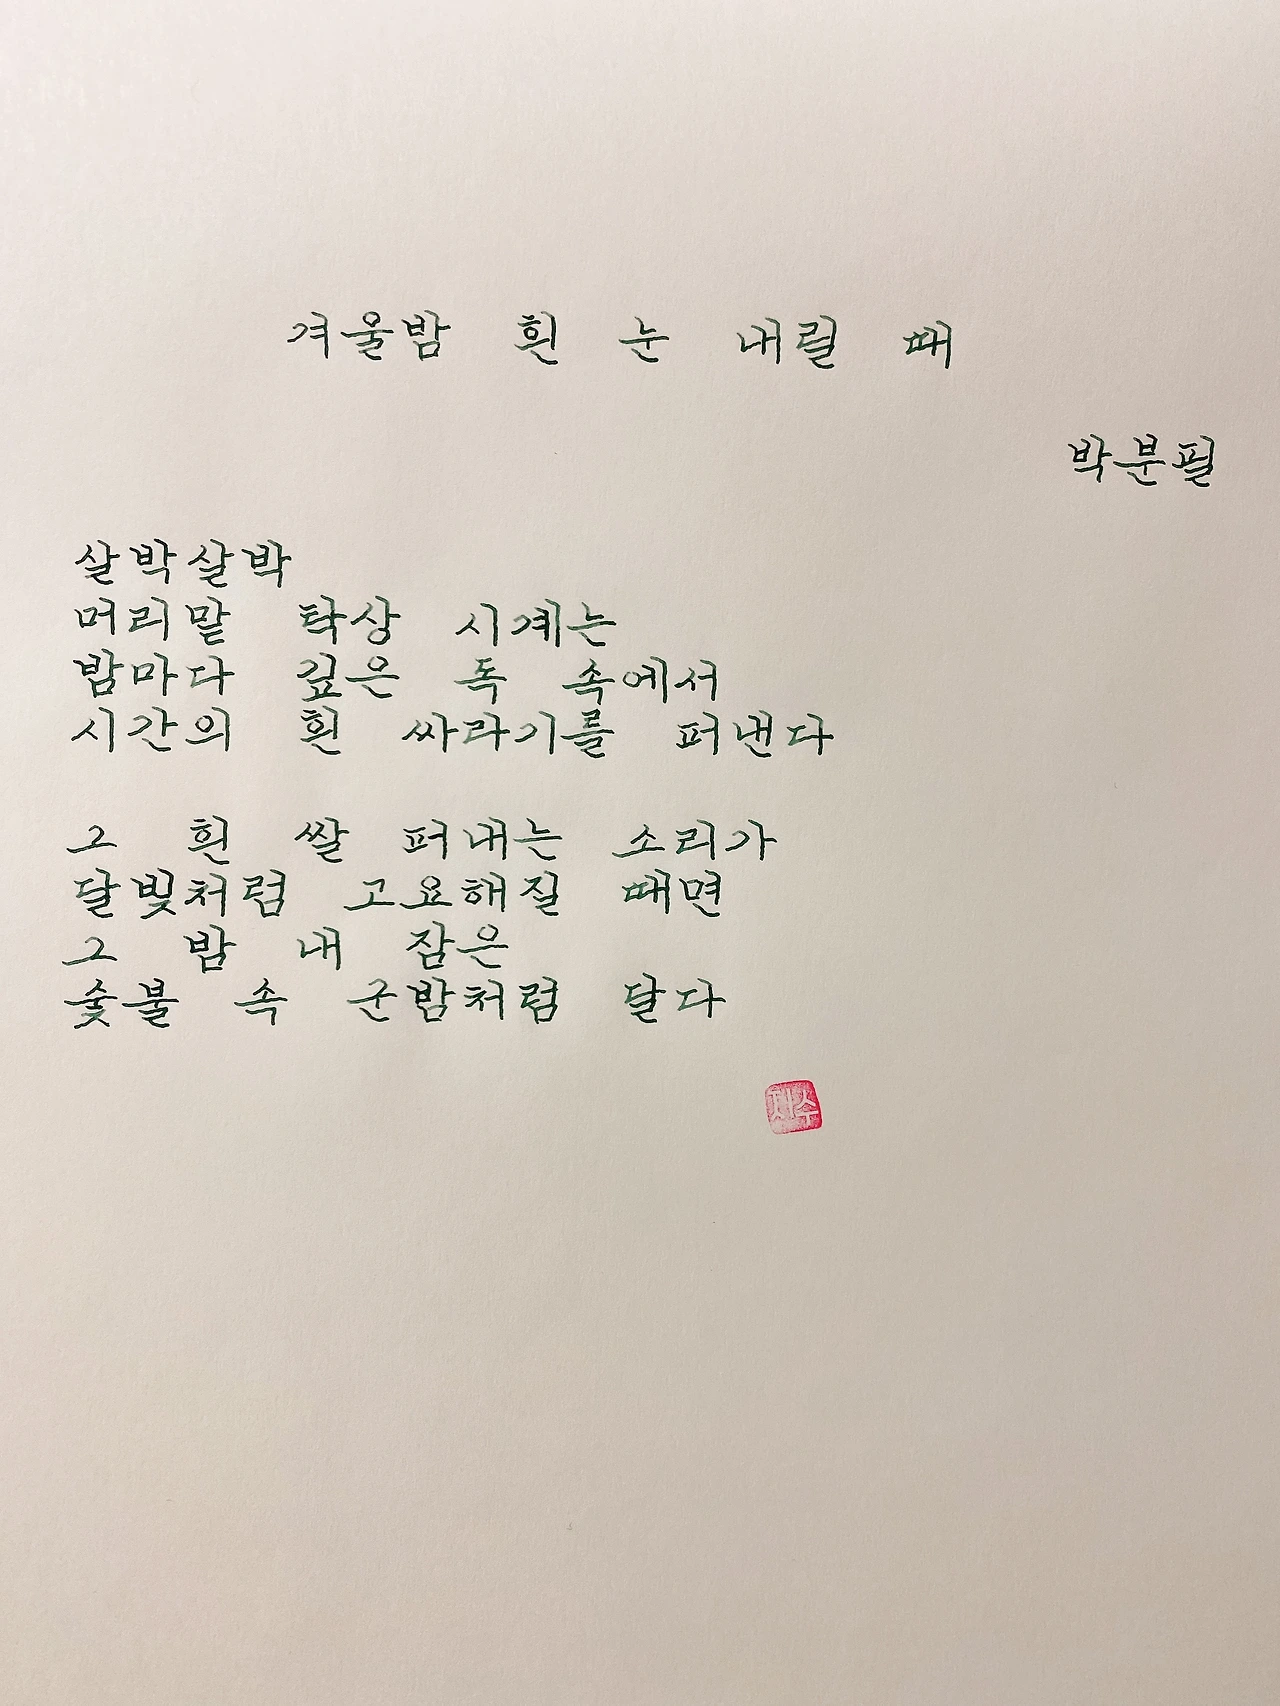 겨울밤 흰 눈 내릴 때
박분필
살박살박
머리맡 탁상 시계는
밤마다 깊은 독 속에서
시간의 흰 싸라기를 퍼낸다
그 흰 쌀 퍼내는 소리가
달빛처럼 고요해질 때면
그 밤 내 잠은
숯불 속 군밤처럼 달다